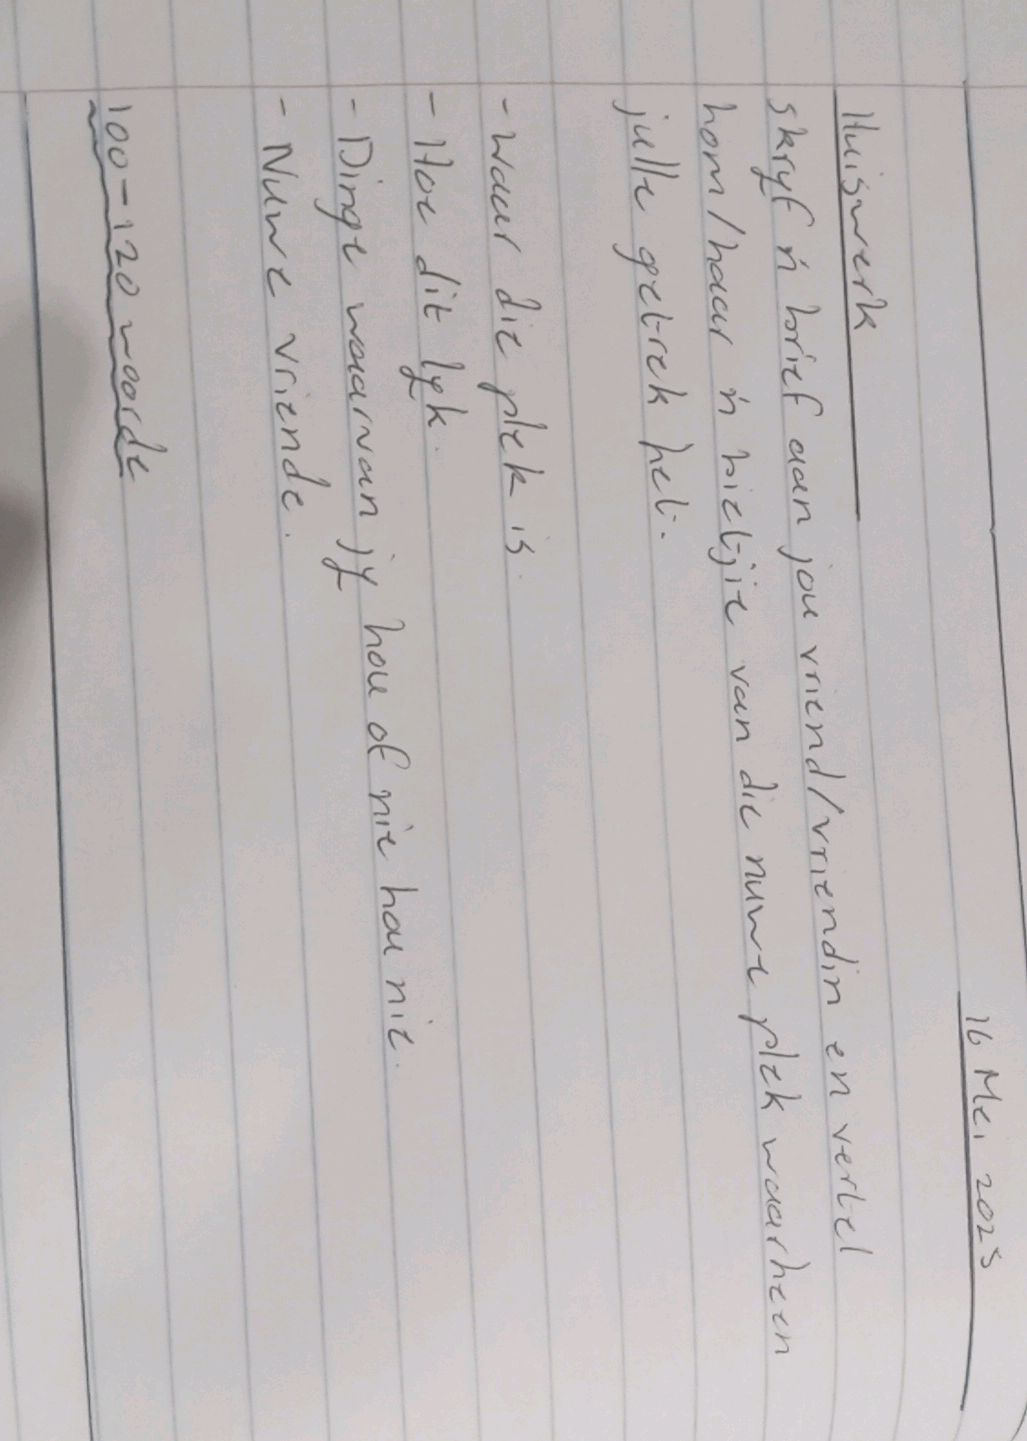 16 Mei 2025
Huiswerk
Skryf 'n brief aan jou vriend/vriendin en vertel
hom/haar 'n bietjie van die nuwe plek waarheen
julle getrek het.
- Waar die plek is.
- Hoe dit lyk.
- Dinge waarvan jy hou of nie hou nie.
- Nuwe vriende.
100-120 woorde